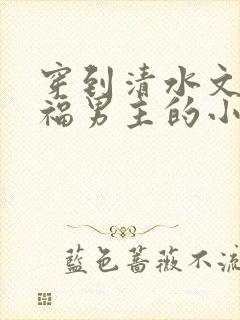 穿到清水文
福男主的小
藍色薔薇不流